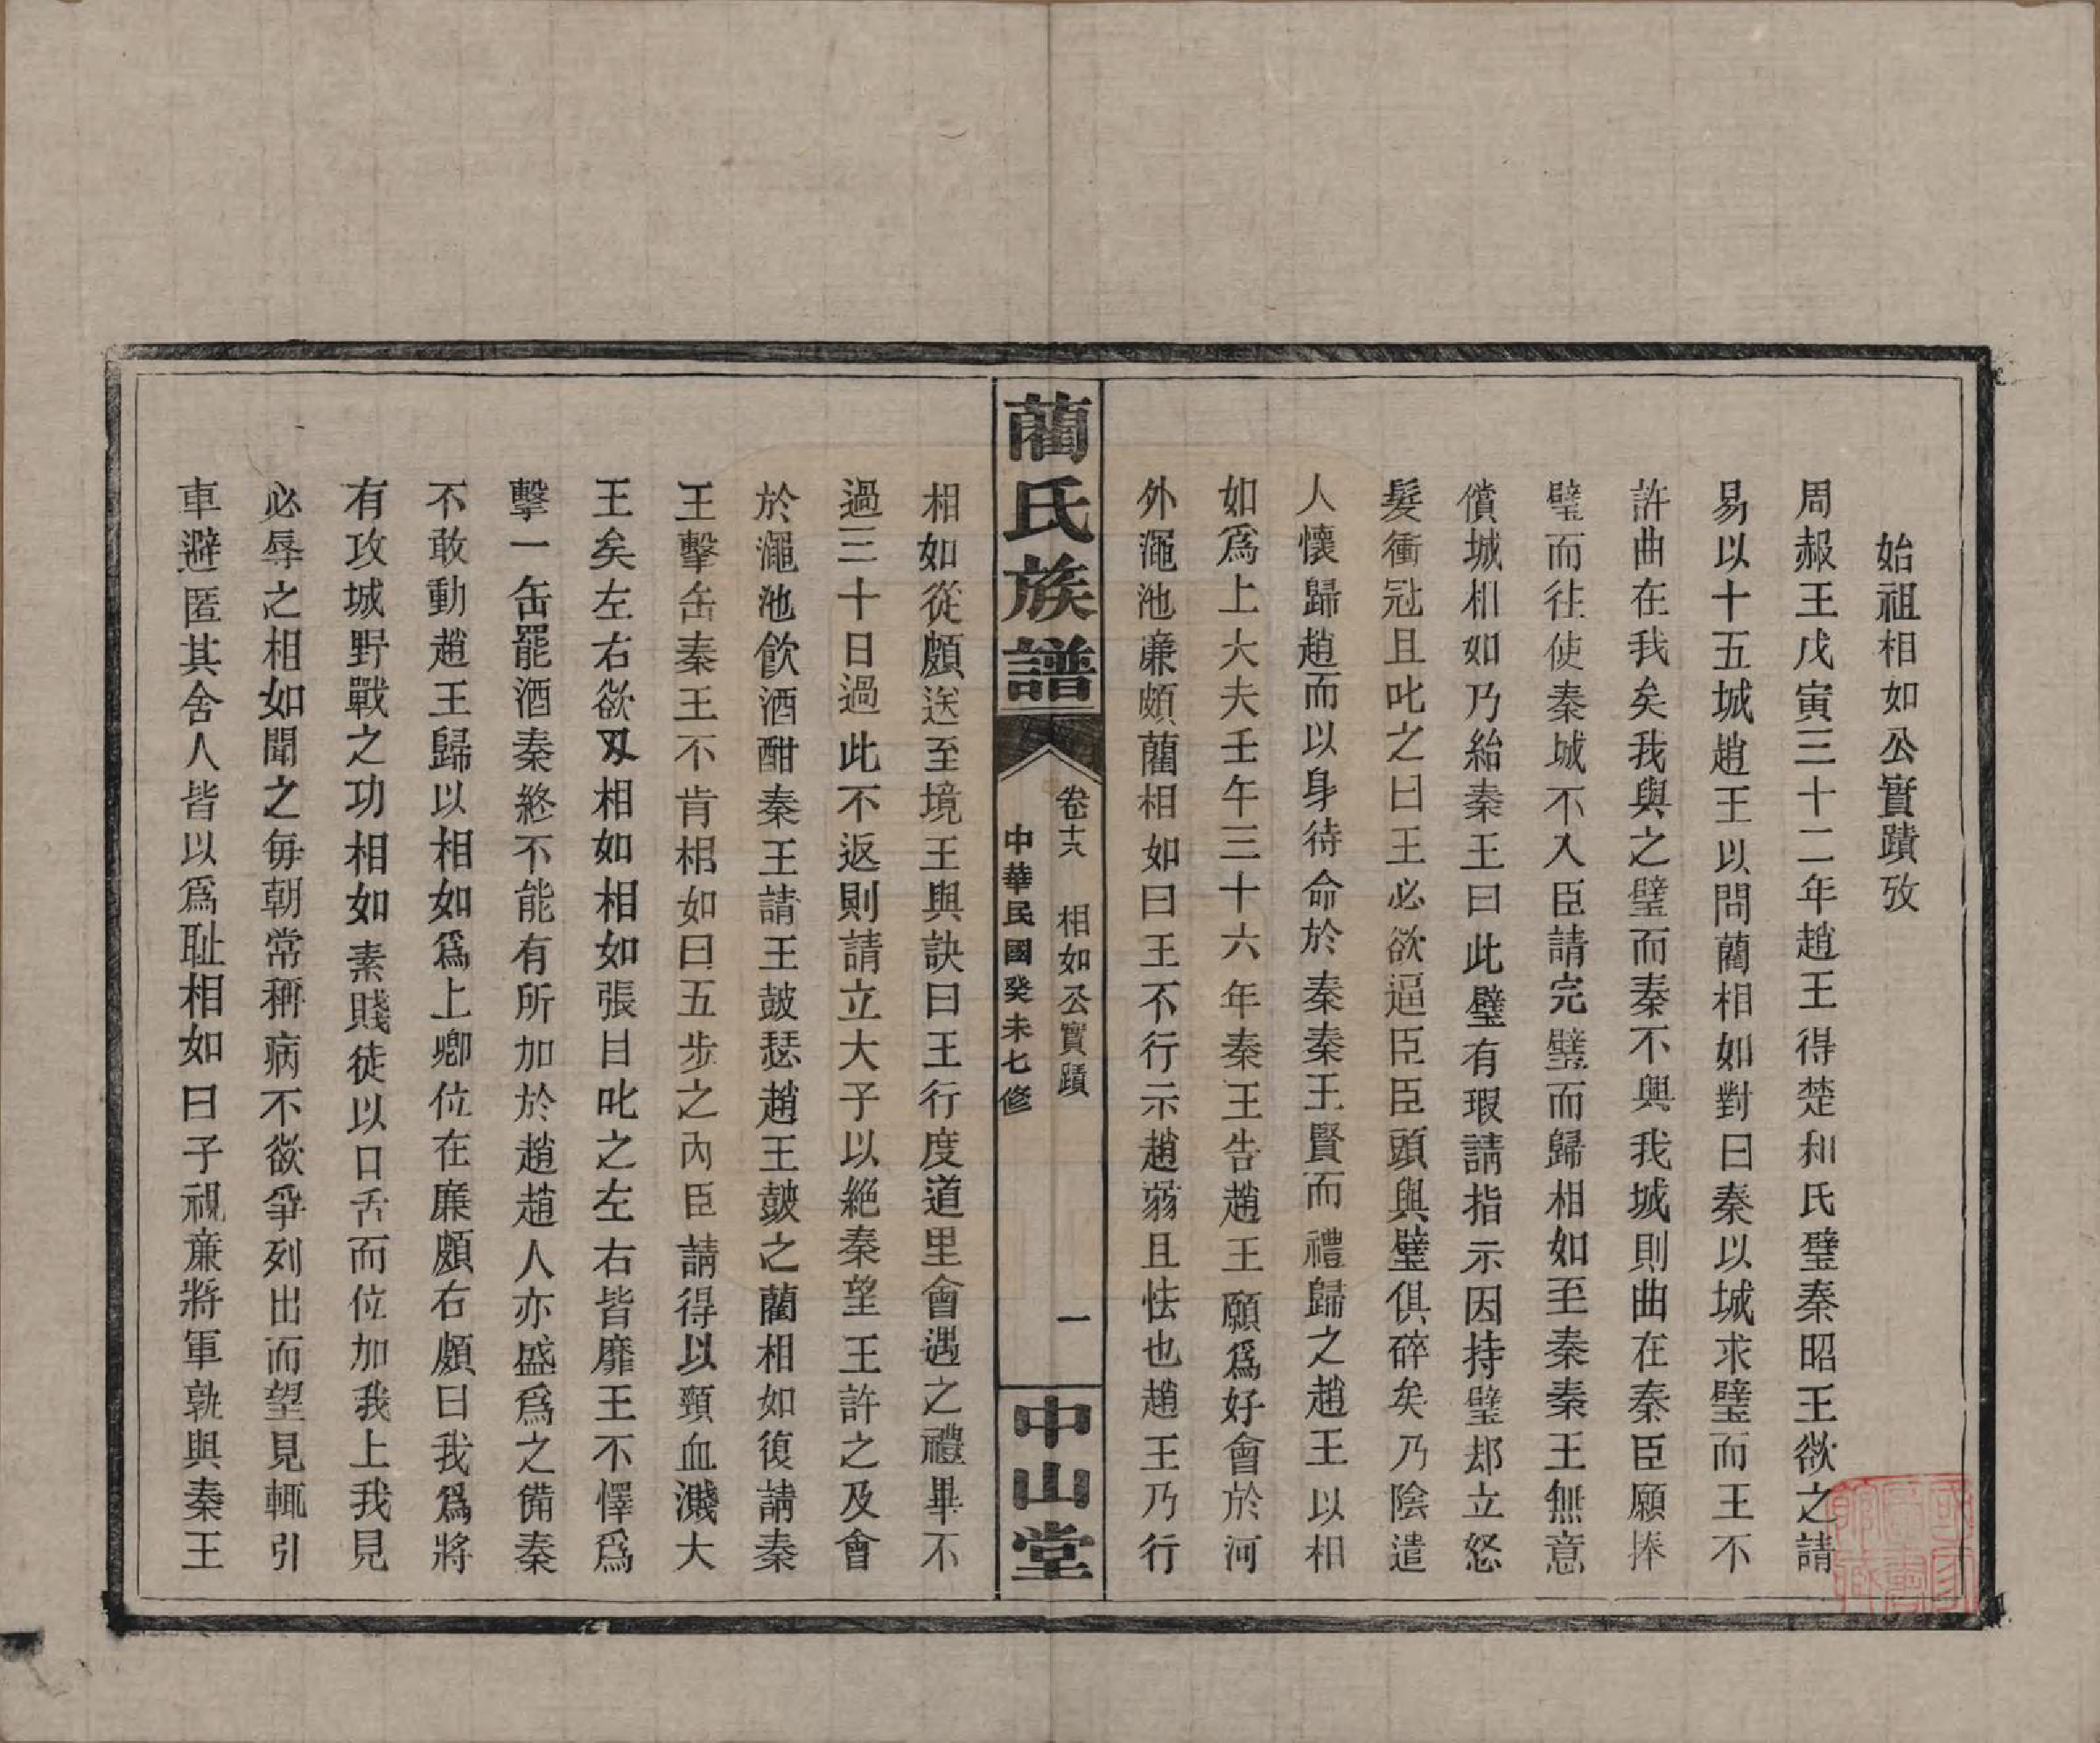 始祖相如公實蹟攷
周赧王戊寅三十二年趙王得楚和氏璧秦昭王欲之請
易以十五城趙王以問藺相如對曰秦以城求璧而王不
許曲在我矣我與之璧而秦不與我城則曲在秦臣願捧
璧而往使秦城不入臣請完璧而歸相如至秦秦王無意
償城相如乃紿秦王曰此璧有瑕請指示因持璧却立怒
髮衝冠且叱之曰王必欲逼臣臣頭與璧俱碎矣乃陰遣
人懷歸趙而以身待命於秦秦王賢而禮歸之趙王以相
如爲上大夫壬午三十六年秦王告趙王願爲好會於河
外澠池亷頗藺相如曰王不行示趙弱且怯也趙王乃行
藺氏族譜
卷十六 相如公實蹟 一
中華民國癸未七修
中山堂
相如從頗送至境王與訣曰王行度道里會遇之禮畢不
過三十日過此不返則請立大子以絕秦望王許之及會
於澠池飲酒酣秦王請王鼓瑟趙王鼓之藺相如復請秦
王擊缶秦王不肯相如曰五步之內臣請得以頸血濺大
王矣左右欲刃相如相如張目叱之左右皆靡王不懌爲
擊一缶罷酒秦終不能有所加於趙趙人亦盛爲之備秦
不敢動趙王歸以相如爲上卿位在廉頗右頗曰我爲將
有攻城野戰之功相如素賤徒以口舌而位加我上我見
必辱之相如聞之每朝常稱病不欲爭列出而望見輒引
車避匿其舍人皆以爲耻相如曰子視亷將軍孰與秦王